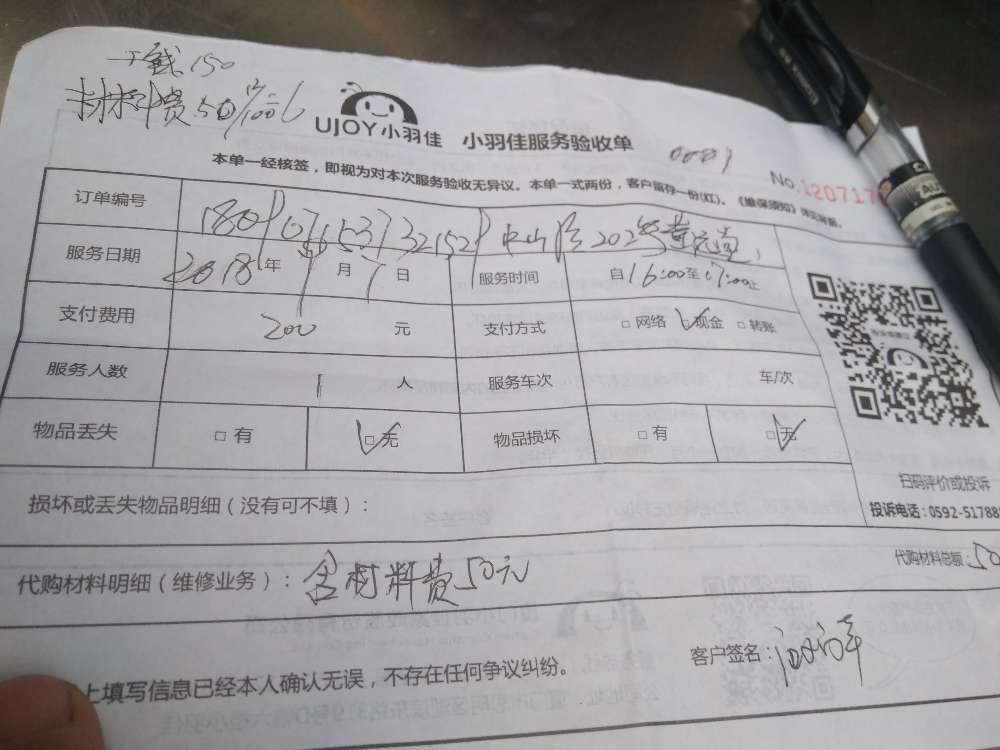 工钱150
材料费50
UJOY小羽佳 小羽佳服务验收单
No.
本单一经核签，即视为对本次服务验收无异议。本单一式两份，客户留存一份(红)。《维保须知》详见背面。
订单编号
服务日期 2018年 月 日 服务时间 自16:00至17:00止
支付费用 200 元 支付方式 □网络 □现金 □转账
服务人数 1 人 服务车次 车/次
物品丢失 □有 □无 物品损坏 □有 □无
扫码评价或投诉
损坏或丢失物品明细（没有可不填）：
投诉电话：0592-51788
代购材料明细（维修业务）：含材料费50元 代购材料总额：50
上填写信息已经本人确认无误，不存在任何争议纠纷。 客户签名：